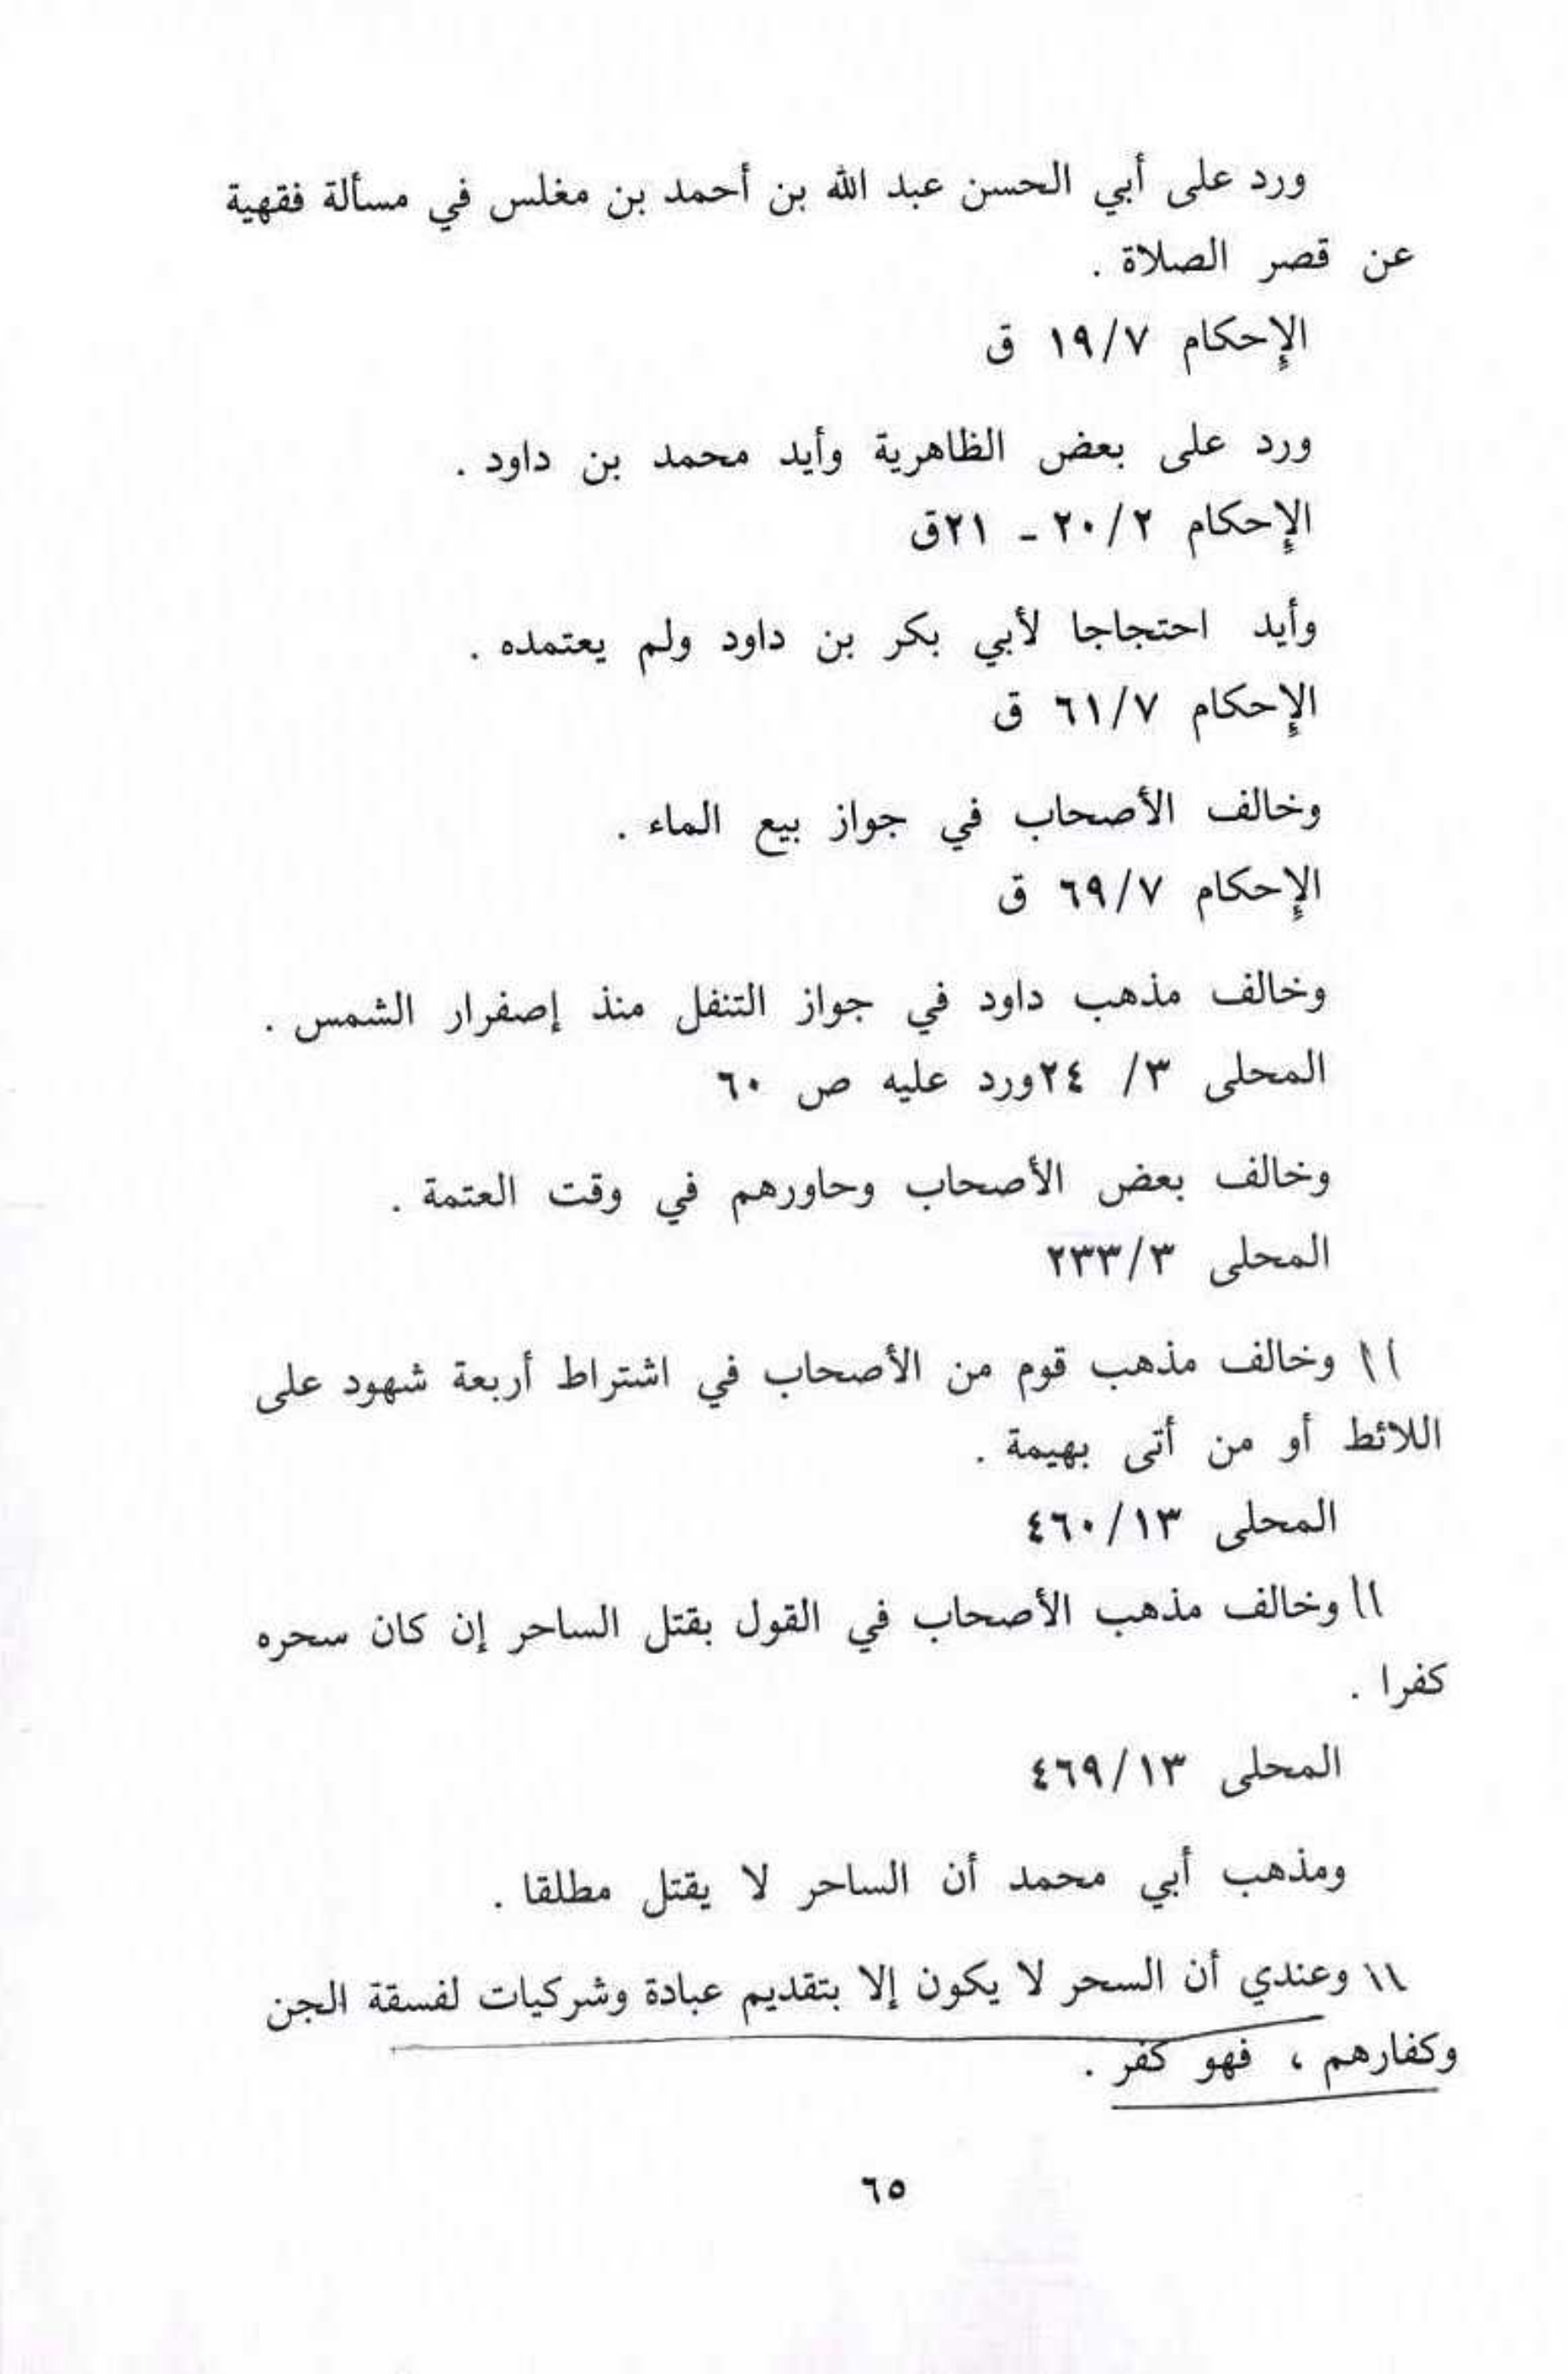 ورد على أبي الحسن عبد الله بن أحمد بن مغلس في مسألة فقهية
عن قصر الصلاة .
الإحكام ١٩/٧ ق
ورد على بعض الظاهرية وأيد محمد بن داود .
الإحكام ٢٠/٢ - ٢١ق
وأيد احتجاجا لأبي بكر بن داود ولم يعتمده .
الإحكام ٦١/٧ ق
وخالف الأصحاب في جواز بيع الماء .
الإحكام ٦٩/٧ ق
وخالف مذهب داود في جواز التنفل منذ إصفرار الشمس .
المحلى ٣/ ٢٤ورد عليه ص ٦٠
وخالف بعض الأصحاب وحاورهم في وقت العتمة .
المحلى ٢٣٣/٣
وخالف مذهب قوم من الأصحاب في اشتراط أربعة شهود على
اللائط أو من أتى بهيمة .
المحلى ٤٦٠/١٣
وخالف مذهب الأصحاب في القول بقتل الساحر إن كان سحره
كفرا .
المحلى ٤٦٩/١٣
ومذهب أبي محمد أن الساحر لا يقتل مطلقا .
وعندي أن السحر لا يكون إلا بتقديم عبادة وشركيات لفسقة الجن
وكفارهم ، فهو كفر .
٦٥